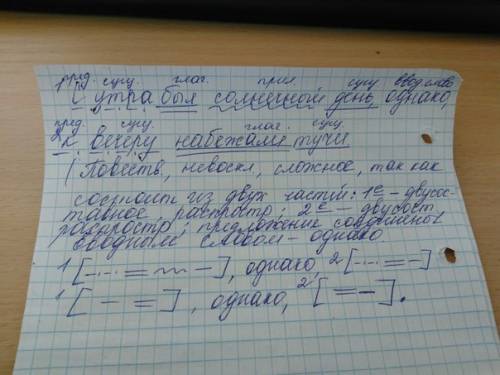 пред. сущ. глаг. прил сущ ввод. слово
1 С утра был солнечный день, однако,
пред сущ. глаг. сущ.
2 к вечеру набежали тучи
(Повеств, невоскл, сложное, так как
состоит из двух частей: 1е - двусос-
тавное, распростр; 2е - двусост
распростр; предложение соединены
вводным словом - однако
1[ ], однако, 2[ ]
1[ ], однако, 2[ ].